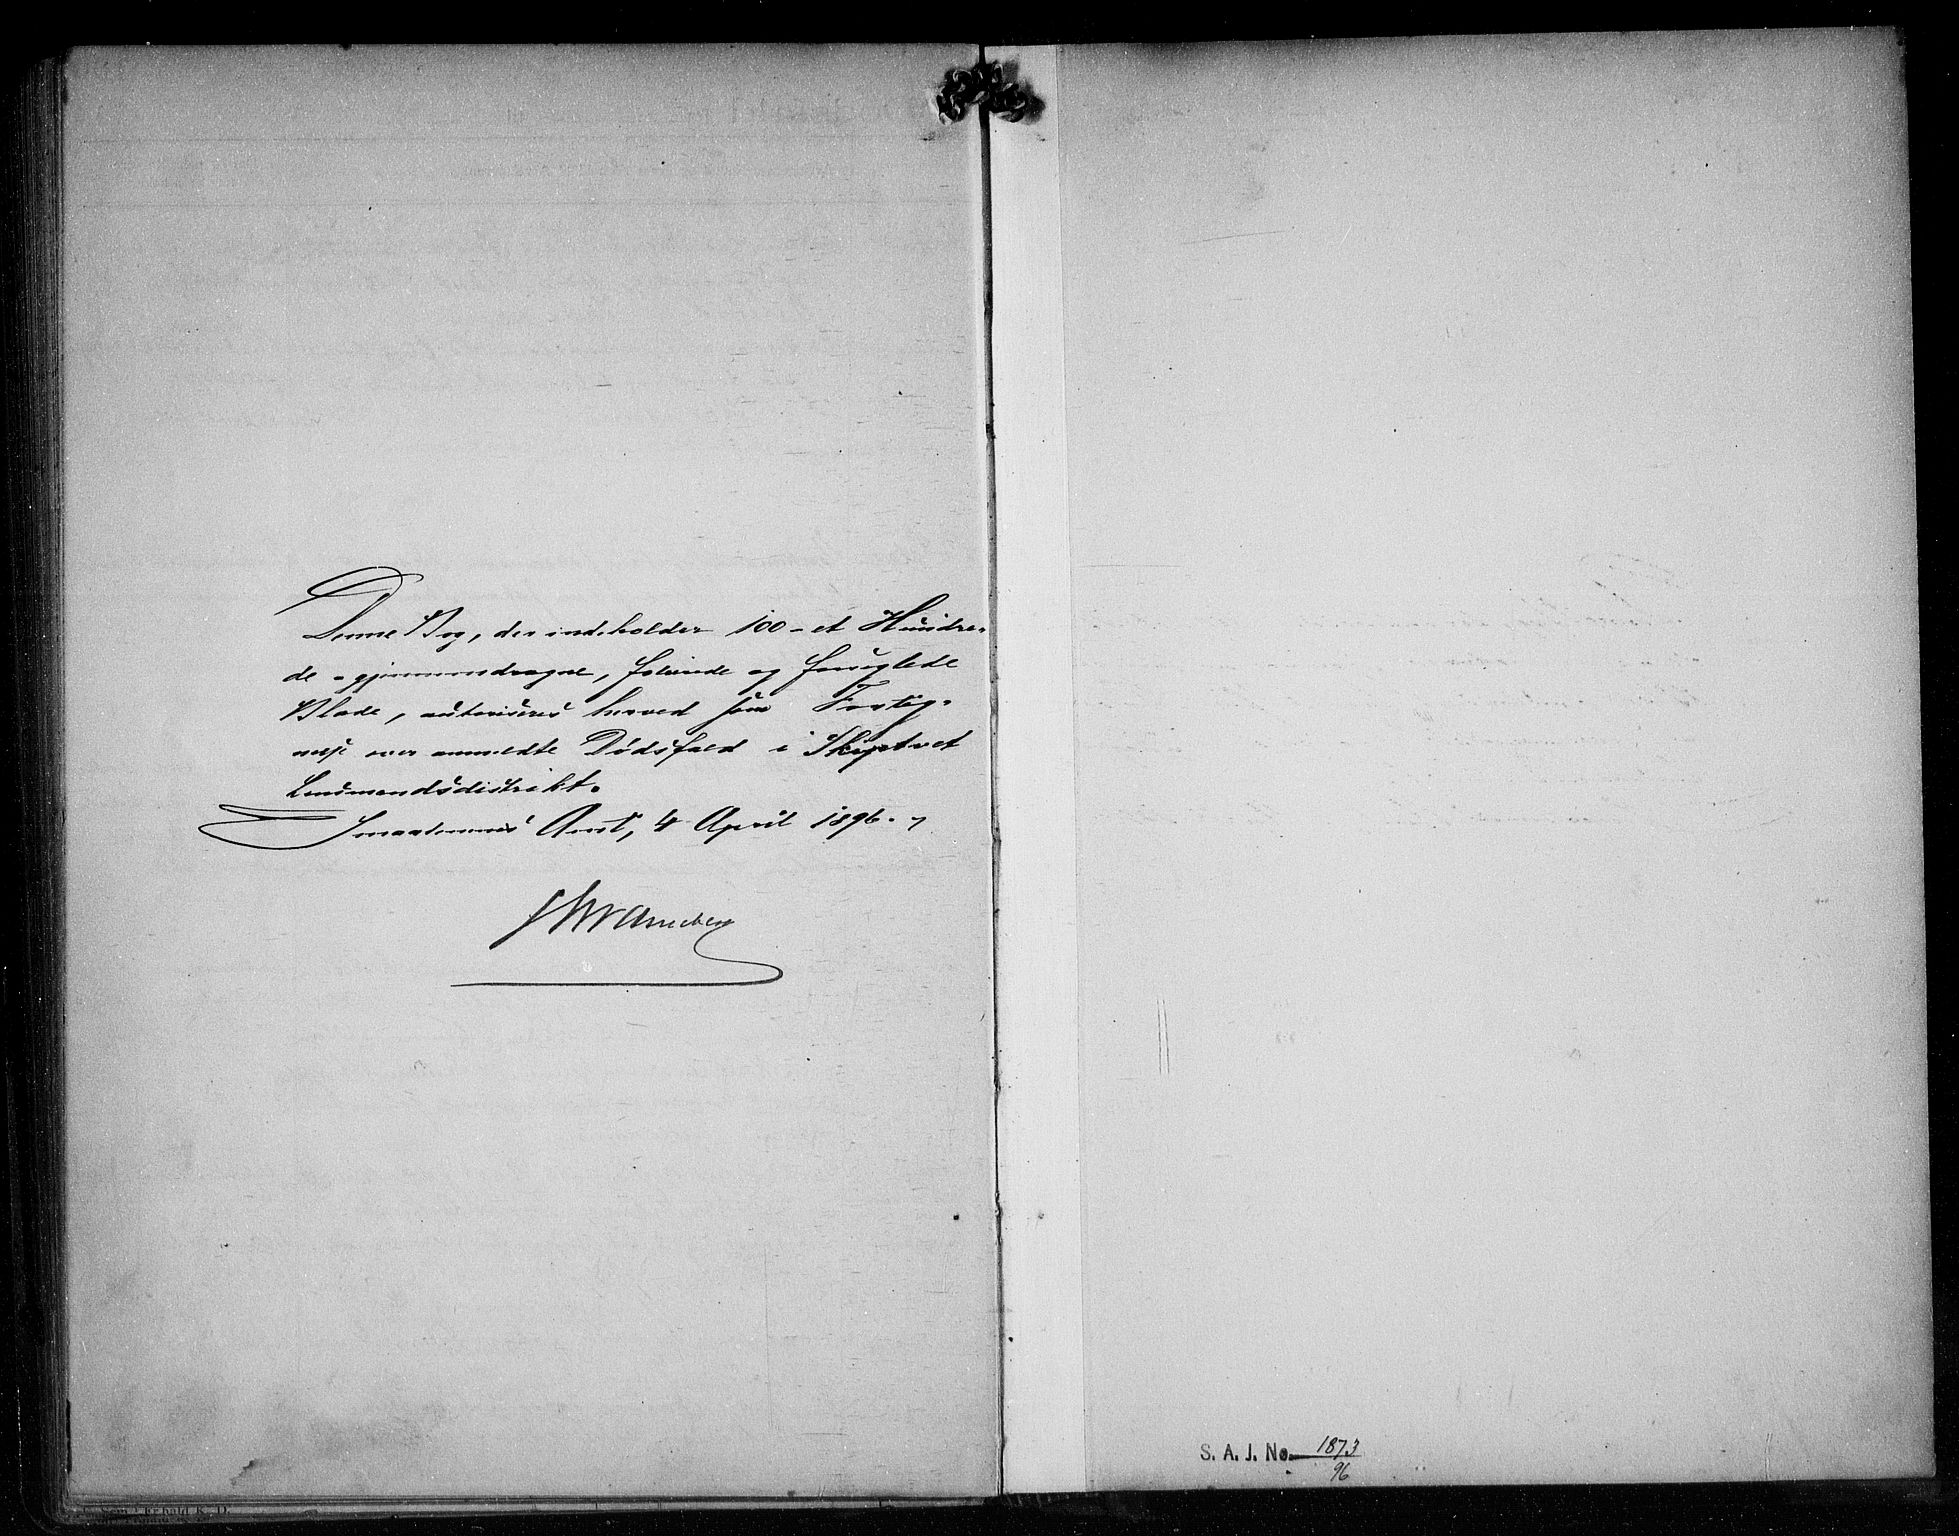 Denne Bog, der indeholder 100 - et Hundre-
de - gjennemdragne, folierede og forseglede
Blade, autoriseres herved som Forteg-
nelse over anmeldte Dødsfald i Skiptvet
Lensmandsdistrikt.
Smaalenenes Amt, 4 April 1896.
S. A. J. No. 1873
96